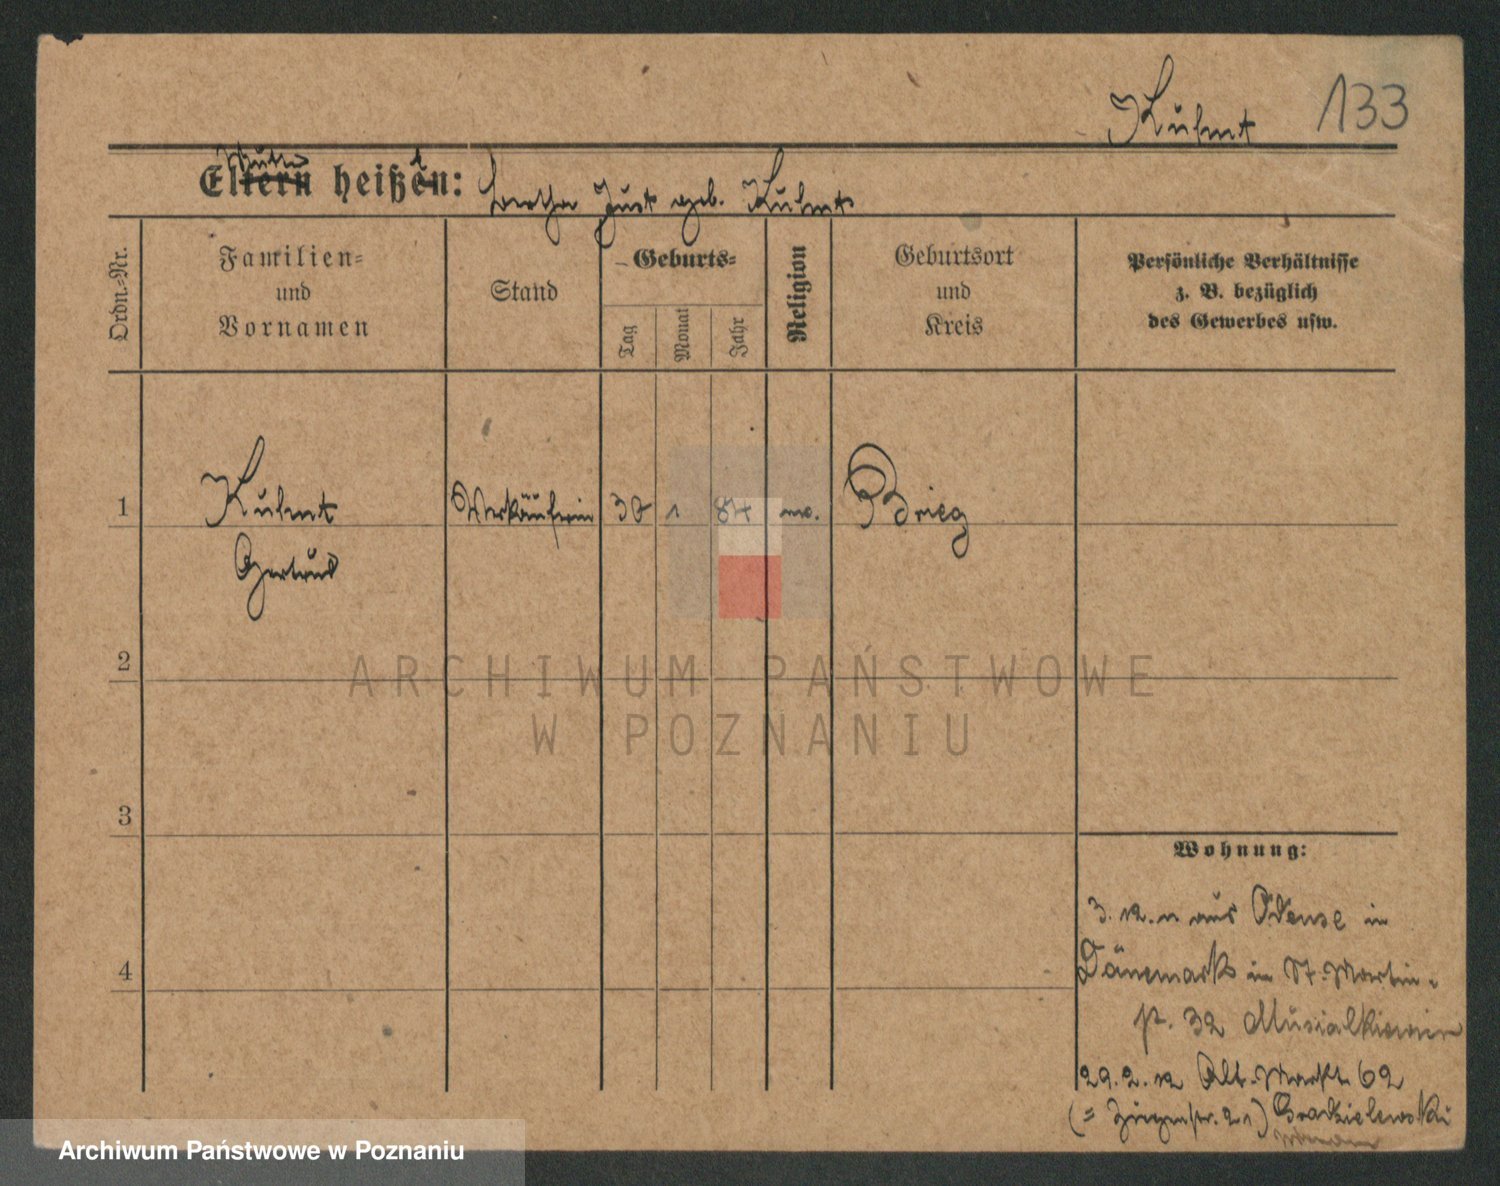 Kuhnt 133
Mutter
Eltern heißen: t
Bertha Just geb. Kuhnt
Ordn.-Nr.
Familien-
und
Vornamen
Stand
Geburts-
Tag
Monat
Jahr
Religion
Geburtsort
und
Kreis
Persönliche Verhältnisse
z. B. bezüglich
des Gewerbes usw.
1 Kuhnt Verkäuferin 30 1 84 Brieg
Gertrud
2
ARCHIWUM PAŃSTWOWE
W POZNANIU
3
Wohnung:
3. 12. 11 aus Odense in
4
Dänemark in St. Martin-
32 Musialkiewicz
29. 2. 12 Alt. Markt 62
(= 21) Gradzielewski
Archiwum Państwowe w Poznaniu